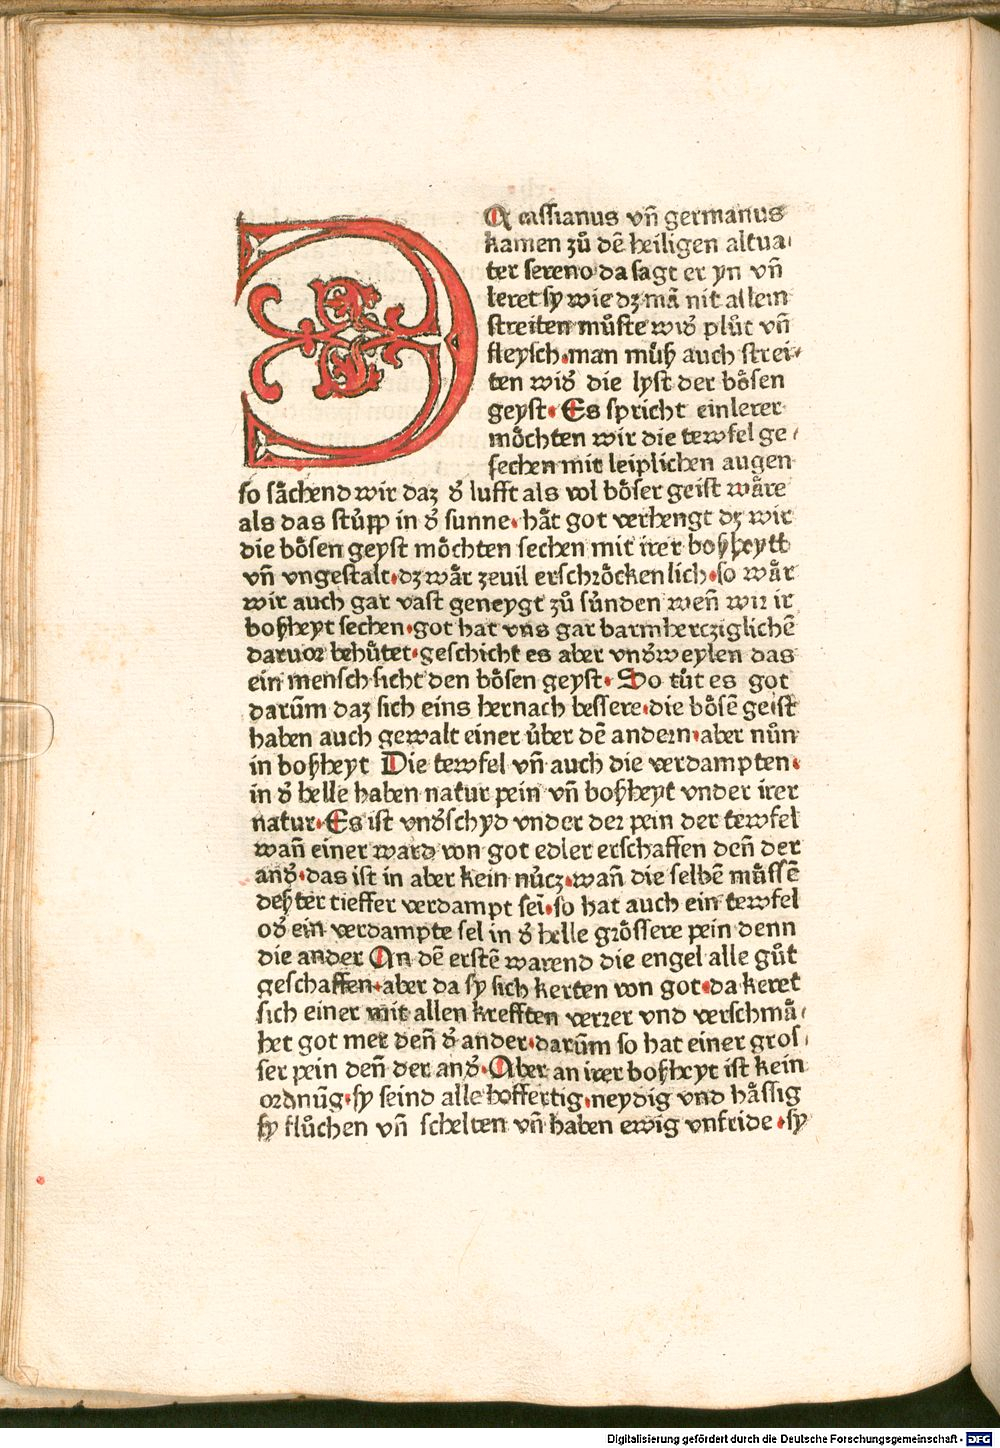 DA cassianus vñ germanus
kamen zů dē heiligen altua⸗
ter sereno da sagt er yn vñ
leret sy wie dʒ mā nit allein
streiten můste wid̕ plůt vñ
fleysch·man můß auch strei⸗
ten wid̕ die lyst der bȫsen
geyst· Es spricht ein lerer
mȫchten wir die tewfel ge⸗
sechen mit leiplichen augen
so sāchend wir daz d̕ lufft als vol bȫser geist wāre
als das stůpp in d̕ sunne· hāt got verhengt dʒ wir
die bȫsen geyst mȫchten sechen mit irer boßheytt
vñ vngestalt·dʒ wār zeuil erschröckenlich·so wār
wir auch gar vast geneygt zů sůnden weñ wir ir
boßheyt sechen·got hat vns gar barmhercziglichē
daruor behůtet·geschicht es aber vnd̕weylen das
ein mensch sicht den bȫsen geyst· So tůt es got
darūm daz sich eins hernach bessere·die bȫsē geist
haben auch gewalt einer ůber dē andern·aber nůn
in boßheyt Die tewfel vñ auch die verdampten·
in d̕ helle haben natur pein vñ boßheyt vnder irer
natur·Es ist vnd̕schyd vnder der pein der tewfel
wañ einer ward von got edler erschaffen deñ der
and̕·das ist in aber kein nůcz·wañ die selbē mūssē
deßter tieffer verdampt sei·so hat auch ein tewfel
od̕ ein verdampte sel in d̕ helle grȫssere pein denn
die ander An dē erstē warend die engel alle gůt
geschaffen·aber da sy sich kerten von got·da keret
sich einer mit allen krefften verrer vnd verschmā⸗
het got mer deñ d̕ ander·darūm so hat einer gros⸗
ser pein deñ der and̕·Aber an irer boßheyt ist kein
ordnūg·sy seind alle hoffertig·neydig vnd hāssig
sy flůchen vñ schelten vñ haben ewig vnfride·sy
Digitalisierung gefördert durch die Deutsche Forschungsgemeinschaft - DFG